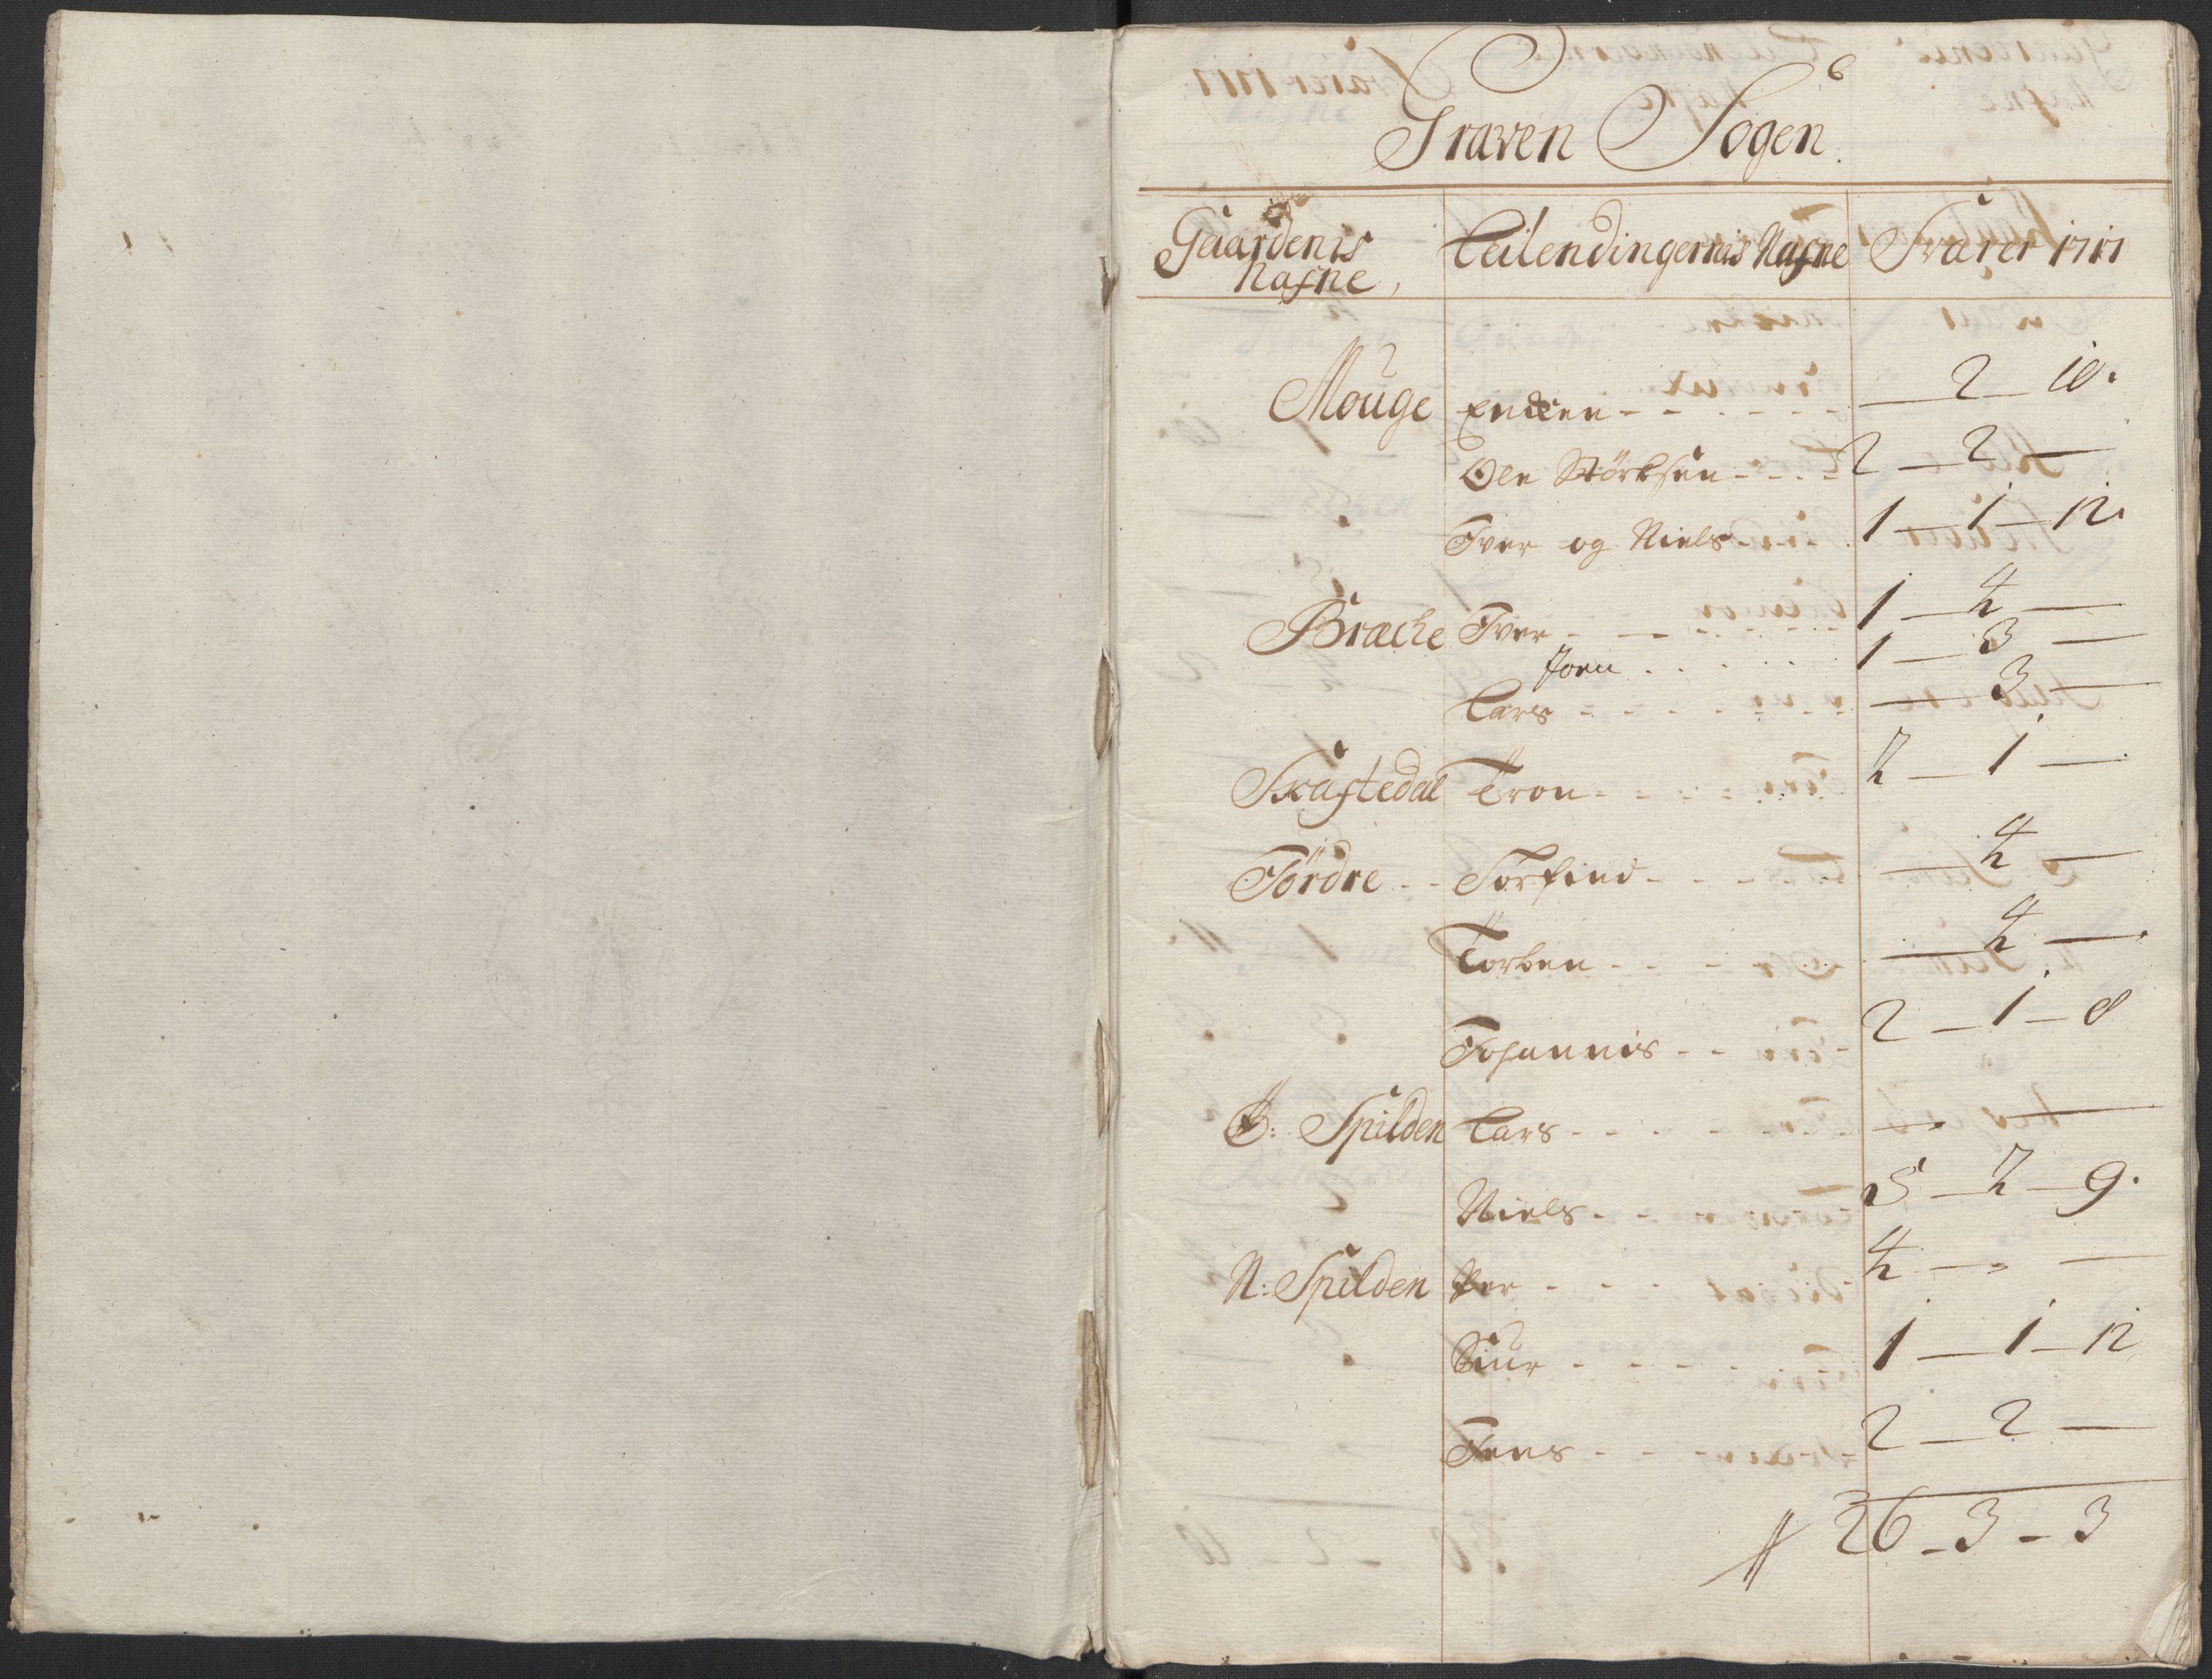 6
Graven Sogen
Gaardenis Nafne, Leilendingernis Nafne Svarer 1717
Mouge Endten - - - - - — 2 — 10.
Ole Størksen - - - - 2 — 2 —
Iver og Niels - - - 1 — 1 — 12.
Bræche Iver - — - - - - 1 — 4 —
Joen . . . . . . 1 — 3 —
Lars - - - - - - — 3 —
Skaftedal Tron - - - - - 2 — 1 —
Tördre - - Torfind - - - - - — 4 —
Torben - - - - — 4 —
Johannis - - - 2 — 1 — 8
Ø: Spilden Lars - - - - - - - — —
Niels - - - - 5 — 2 — 9.
N: Spilden Per - - - - 4 — - —
Siur - - - - - 1 — 1 — 12
Jens - - - - 2 — 2 —
26 - 3 - 3